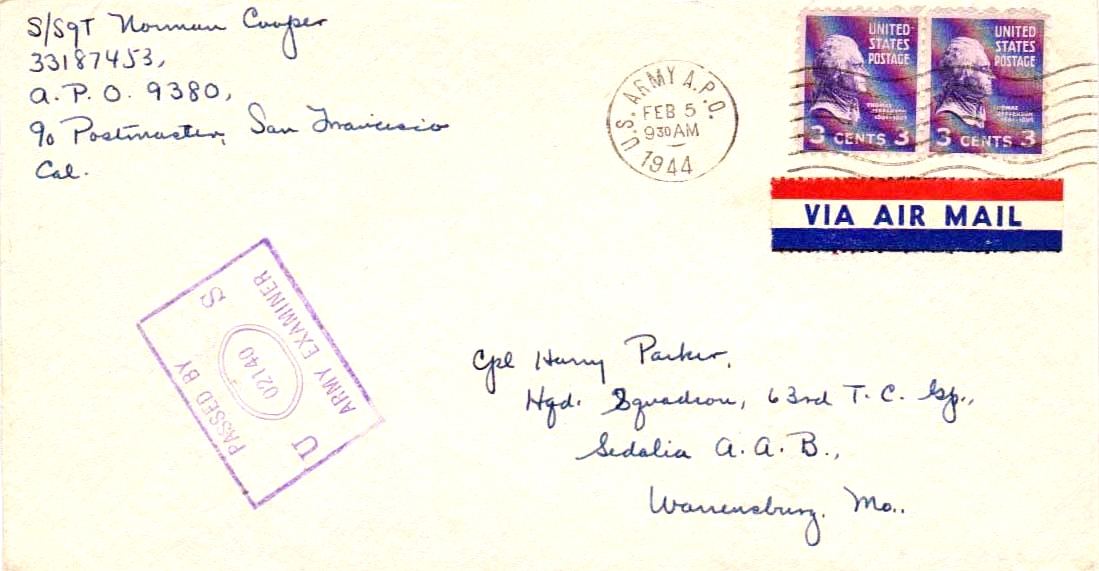 S/Sgt Norman Cooper
33187453,
A. P. O. 9380,
c/o Postmaster, San Francisco
Cal.
U.S. ARMY A.P.O.
FEB 5
9 30 AM
1944
UNITED STATES POSTAGE
THOMAS JEFFERSON
1801-1809
3 CENTS 3
UNITED STATES POSTAGE
THOMAS JEFFERSON
1801-1809
3 CENTS 3
VIA AIR MAIL
PASSED BY
U 02140 S
ARMY EXAMINER
Cpl Harry Parker,
Hqd. Squadron, 63rd T. C. Gp.,
Sedalia A. A. B.,
Warrensburg, Mo..